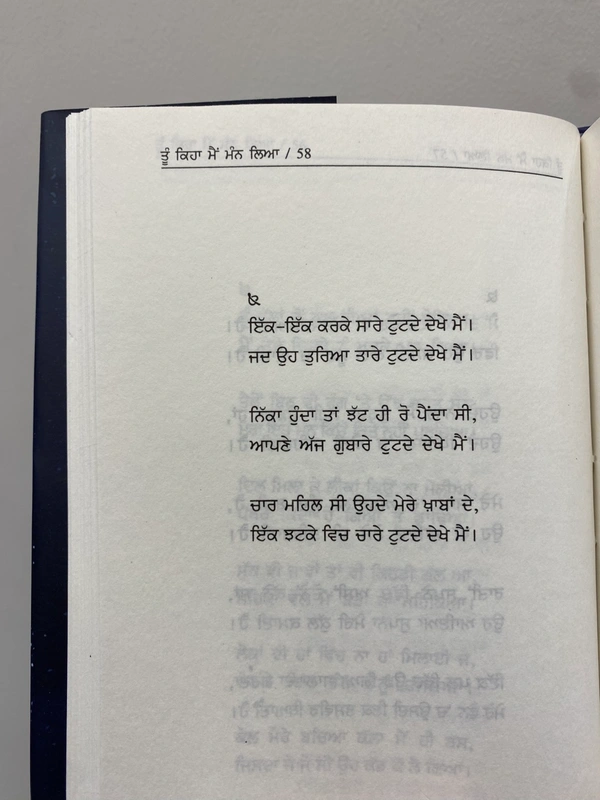 ਤੂੰ ਕਿਹਾ ਮੈਂ ਮੰਨ ਲਿਆ / 58
ਇੱਕ-ਇੱਕ ਕਰਕੇ ਸਾਰੇ ਟੁਟਦੇ ਦੇਖੇ ਮੈਂ।
ਜਦ ਉਹ ਤੁਰਿਆ ਤਾਰੇ ਟੁਟਦੇ ਦੇਖੇ ਮੈਂ।
ਨਿੱਕਾ ਹੁੰਦਾ ਤਾਂ ਝੱਟ ਹੀ ਰੋ ਪੈਂਦਾ ਸੀ,
ਆਪਣੇ ਅੱਜ ਗੁਬਾਰੇ ਟੁਟਦੇ ਦੇਖੇ ਮੈਂ।
ਚਾਰ ਮਹਿਲ ਸੀ ਉਹਦੇ ਮੇਰੇ ਖ਼ਾਬਾਂ ਦੇ,
ਇੱਕ ਝਟਕੇ ਵਿਚ ਚਾਰੇ ਟੁਟਦੇ ਦੇਖੇ ਮੈਂ।